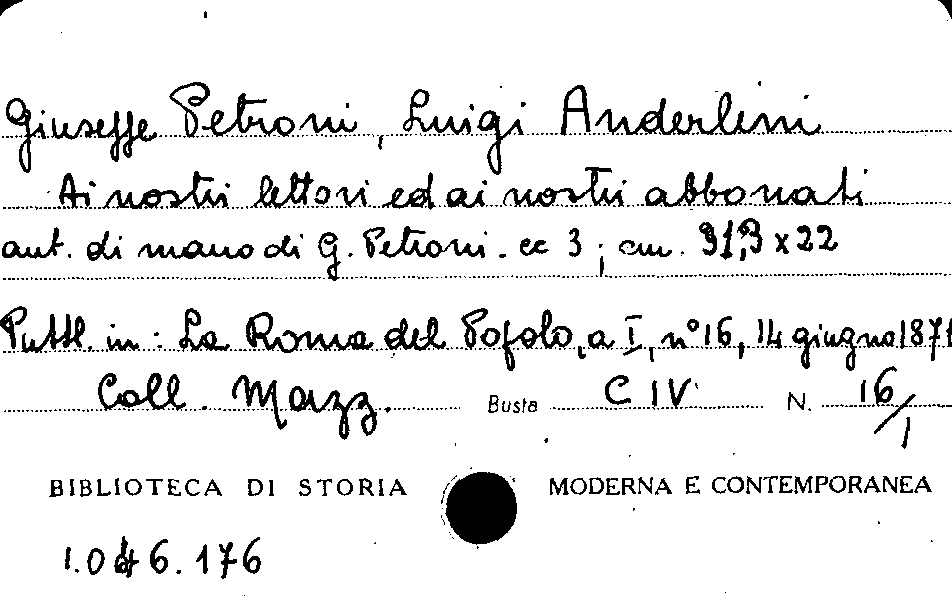 Giuseppe Petroni, Luigi Anderlini
Ai nostri lettori ed ai nostri abbonati
aut. di mano di G. Petroni. cc 3; cm. 31,3 x 22
Pubbl. in: La Roma del Popolo, a I, n° 16, 14 giugno 1871
Coll. Mazz. Busta C IV N. 16/1
BIBLIOTECA DI STORIA MODERNA E CONTEMPORANEA
1.046.176